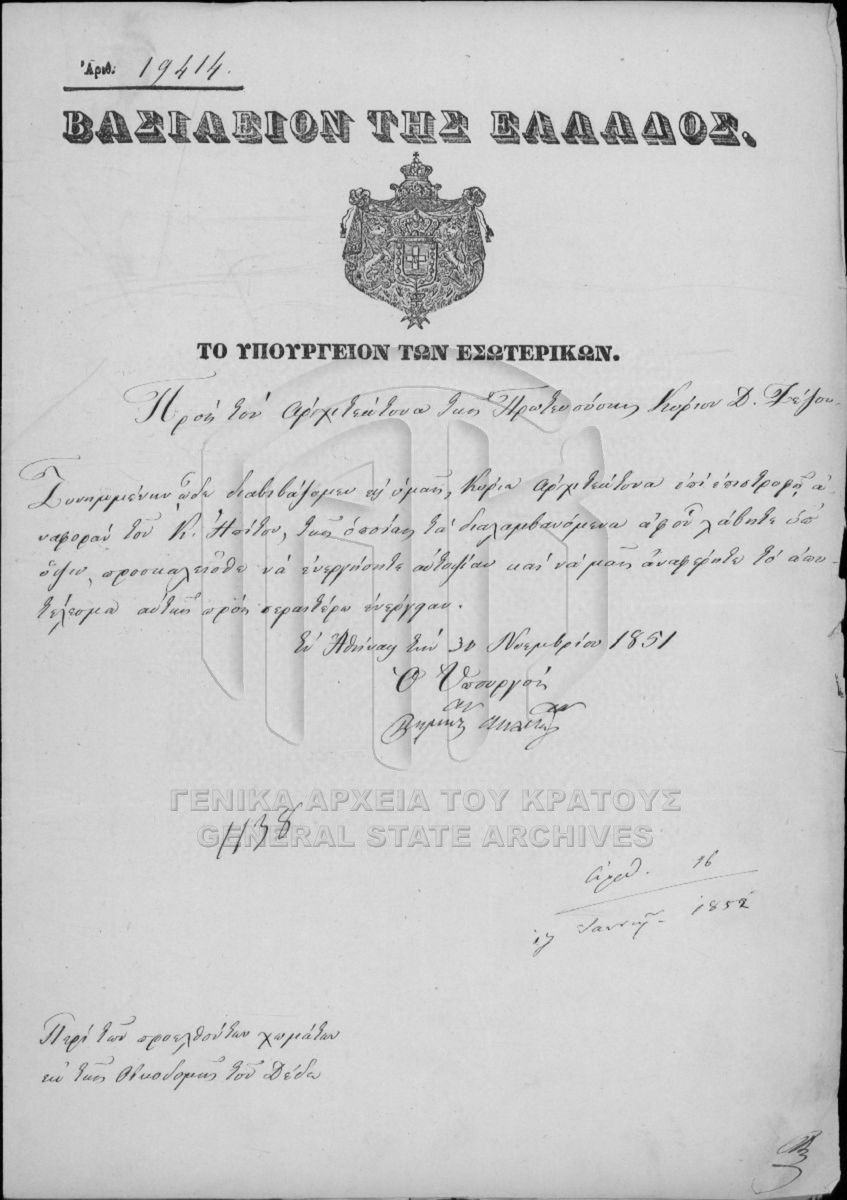 Ἀριθ: 19414.
ΒΑΣΙΛΕΙΟΝ ΤΗΣ ΕΛΛΑΔΟΣ.
ΤΟ ΥΠΟΥΡΓΕΙΟΝ ΤΩΝ ΕΣΩΤΕΡΙΚΩΝ.
Πρὸς τὸν ἀρχιτέκτονα τῆς Πρωτευούσης Κύριον Δ. Ζέζον
Συνημμένην ὧδε διαβιβάζομεν εἰς ὑμᾶς, Κύριε ἀρχιτέκτονα ἐπὶ ἐπιστροφῇ ἀ-
ναφορὰν τοῦ Κ. Ἠπίτου, τῆς ὁποίας τὰ διαλαμβανόμενα ἀφοῦ λάβητε ὑπ'
ὄψιν, προσκαλεῖσθε νὰ ἐνεργήσητε αὐτοψίαν καὶ νὰ μᾶς ἀναφέρητε τὸ ἀπο-
τέλεσμα αὐτῆς πρὸς περαιτέρω ἐνέργειαν.
Ἐν Ἀθήναις τὴν 30 Νοεμβρίου 1851
Ὁ Ὑπουργὸς
ΓΕΝΙΚΑ ΑΡΧΕΙΑ ΤΟΥ ΚΡΑΤΟΥΣ
GENERAL STATE ARCHIVES
1138
ἀριθ. 16
17 Ἰανουαρ. 1852
Περὶ τῶν προελθόντων χωμάτων
ἐκ τῆς Οἰκοδομῆς τοῦ Δέδε